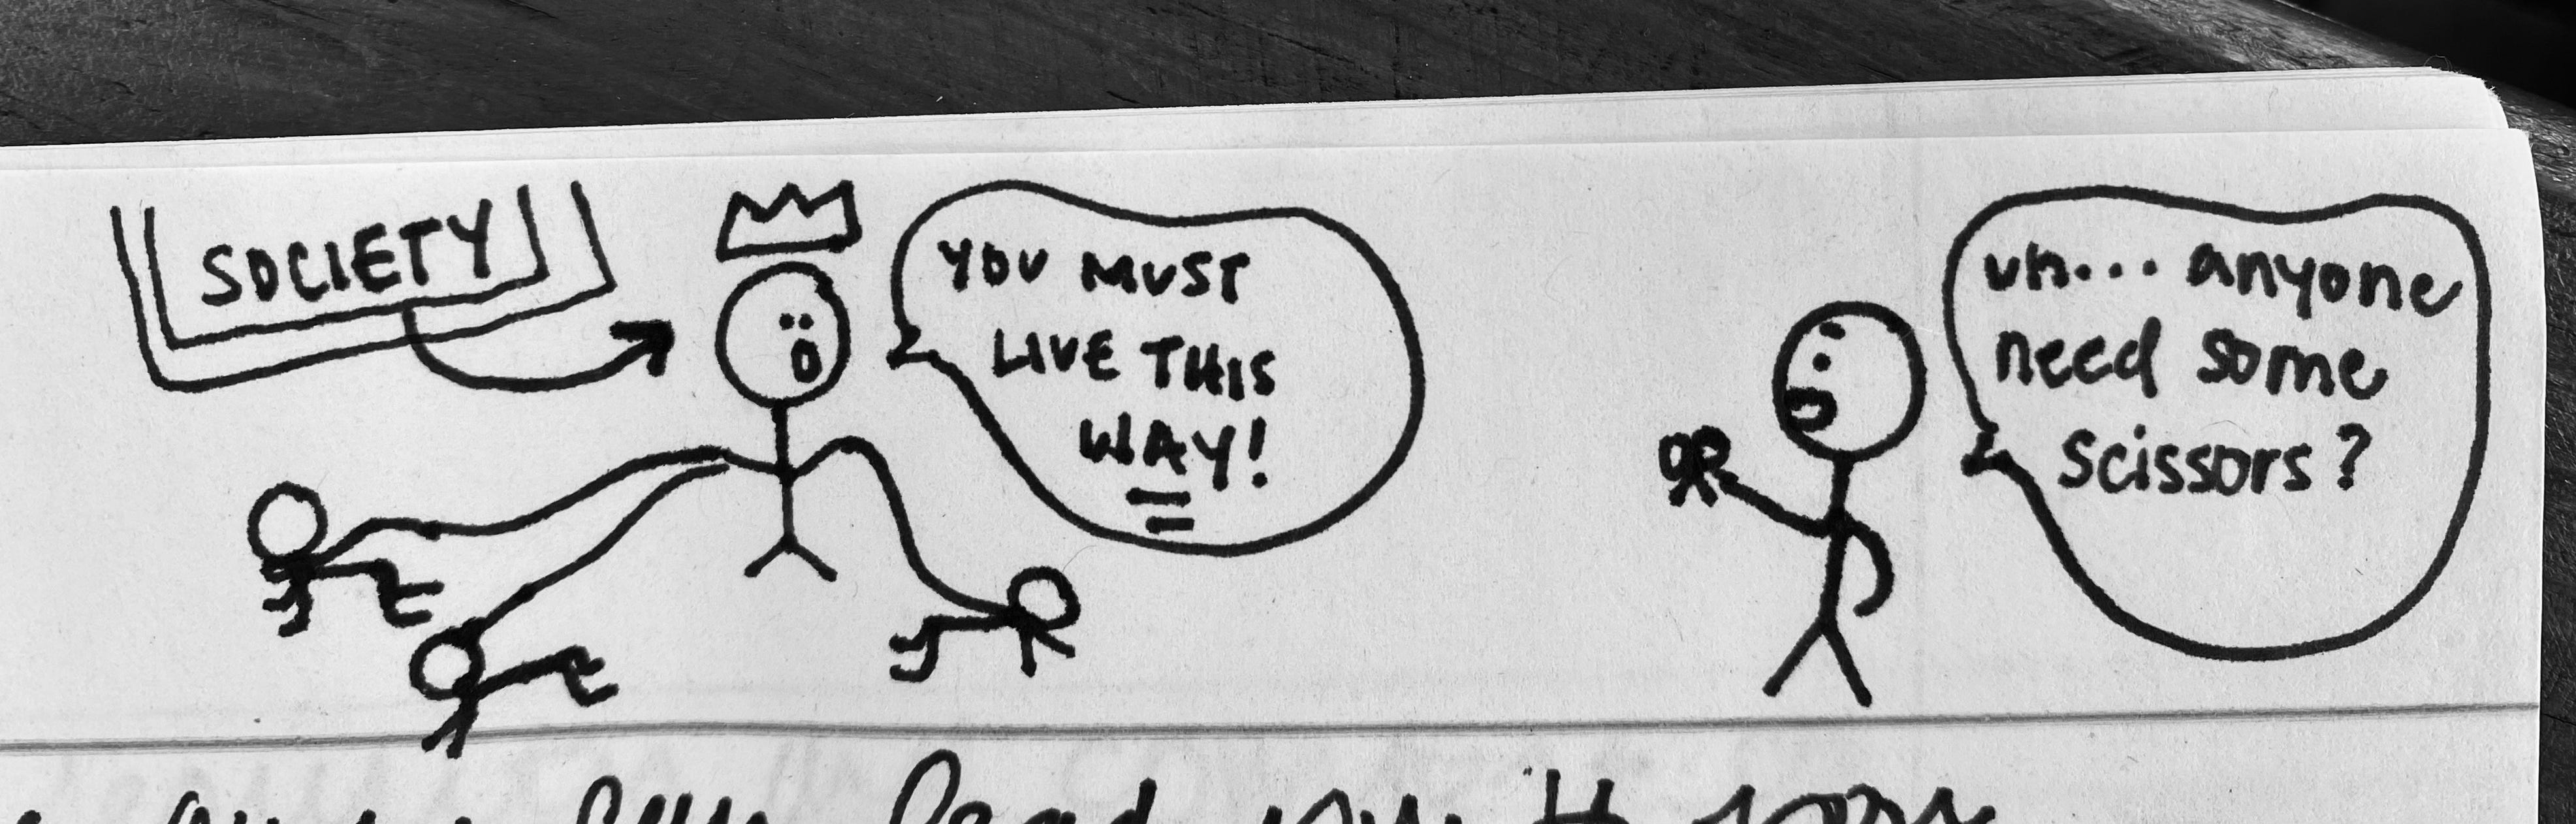 SOCIETY
YOU MUST
LIVE THIS
WAY!
uh... anyone
need some
scissors?